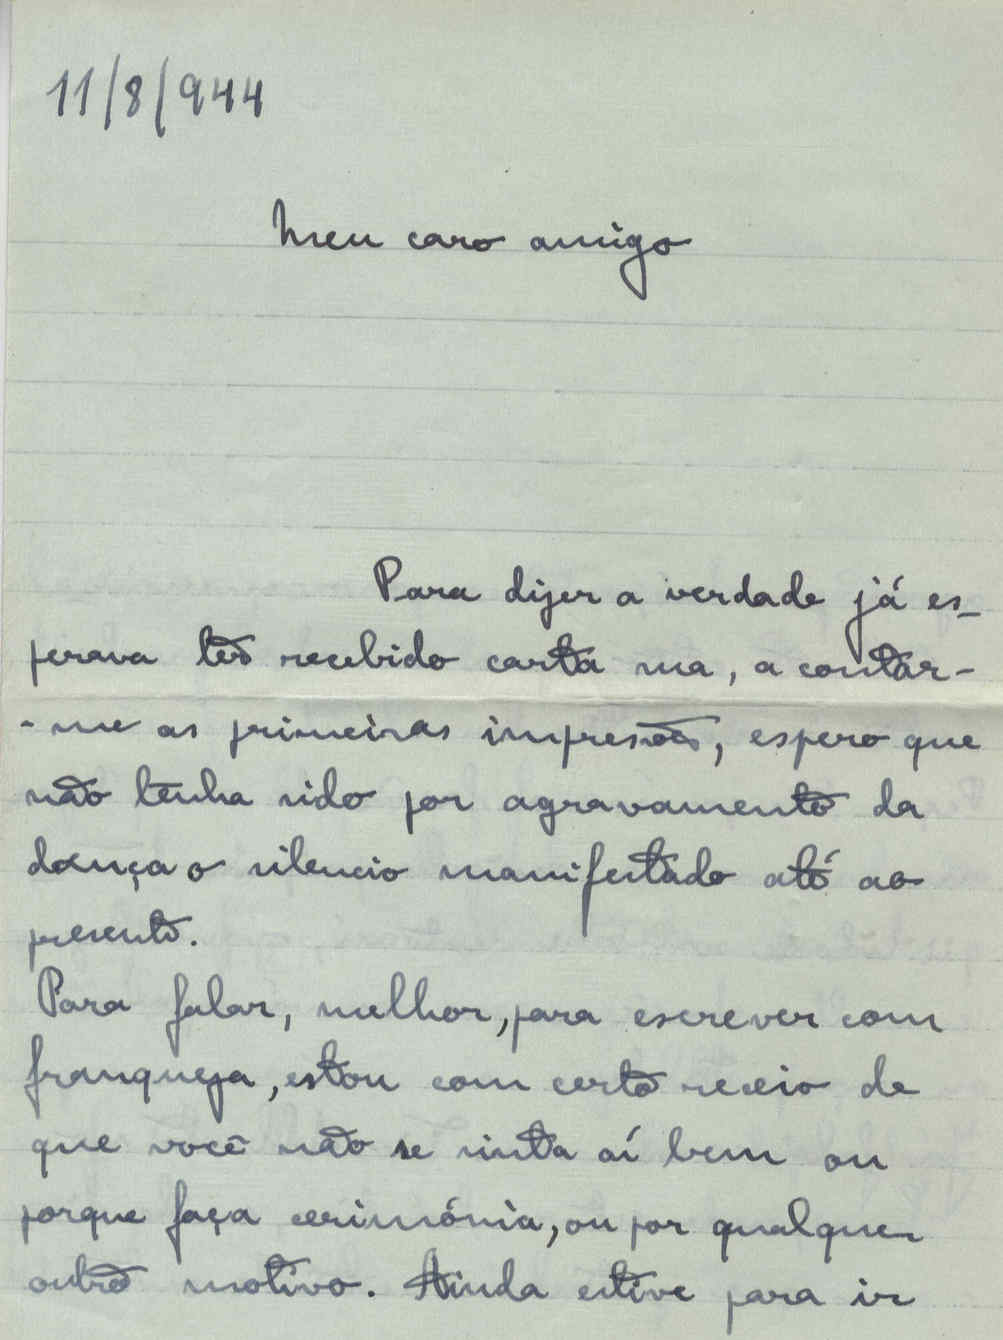 11/8/944
Meu caro amigo
Para dizer a verdade já es-
perava ter recebido carta sua, a contar-
-me as primeiras impresões, espero que
não tenha sido por agravamento da
doença o silencio manifestado até ao
presente.
Para falar, melhor, para escrever com
franqueza, estou com certo receio de
que você não se sinta aí bem ou
porque faça cerimónia, ou por qualquer
outro motivo. Ainda estive para ir